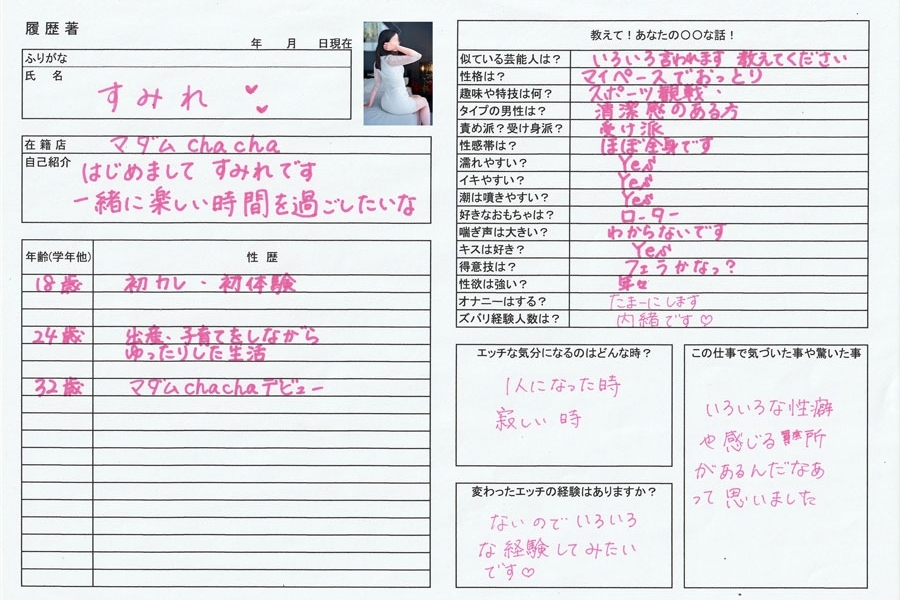 履歴著
年 月 日現在
ふりがな
氏 名
すみれ
在籍店
マダムchacha
自己紹介
はじめまして すみれです
一緒に楽しい時間を過ごしたいな
年齢(学年他)
性 歴
18歳 初カレ・初体験
24歳 出産・子育てをしながら
ゆったりした生活
32歳 マダムchachaデビュー
教えて!あなたの〇〇な話!
似ている芸能人は? いろいろ言われます 教えてください
性格は? マイペースでおっとり
趣味や特技は何? スポーツ観戦・
タイプの男性は? 清潔感のある方
責め派?受け身派? 受け派
性感帯は? ほぼ全身です
濡れやすい? Yes
イキやすい? Yes
潮は噴きやすい? Yes
好きなおもちゃは? ローター
喘ぎ声は大きい? わからないです
キスは好き? Yes
得意技は? フェラかなっ?
性欲は強い?
オナニーはする? たまーにします
ズバリ経験人数は? 内緒です♡
エッチな気分になるのはどんな時?
1人になった時
寂しい時
変わったエッチの経験はありますか?
ないので いろいろ
な経験してみたい
です♡
この仕事で気づいた事や驚いた事
いろいろな性癖
や感じる 所
があるんだなあ
って思いました